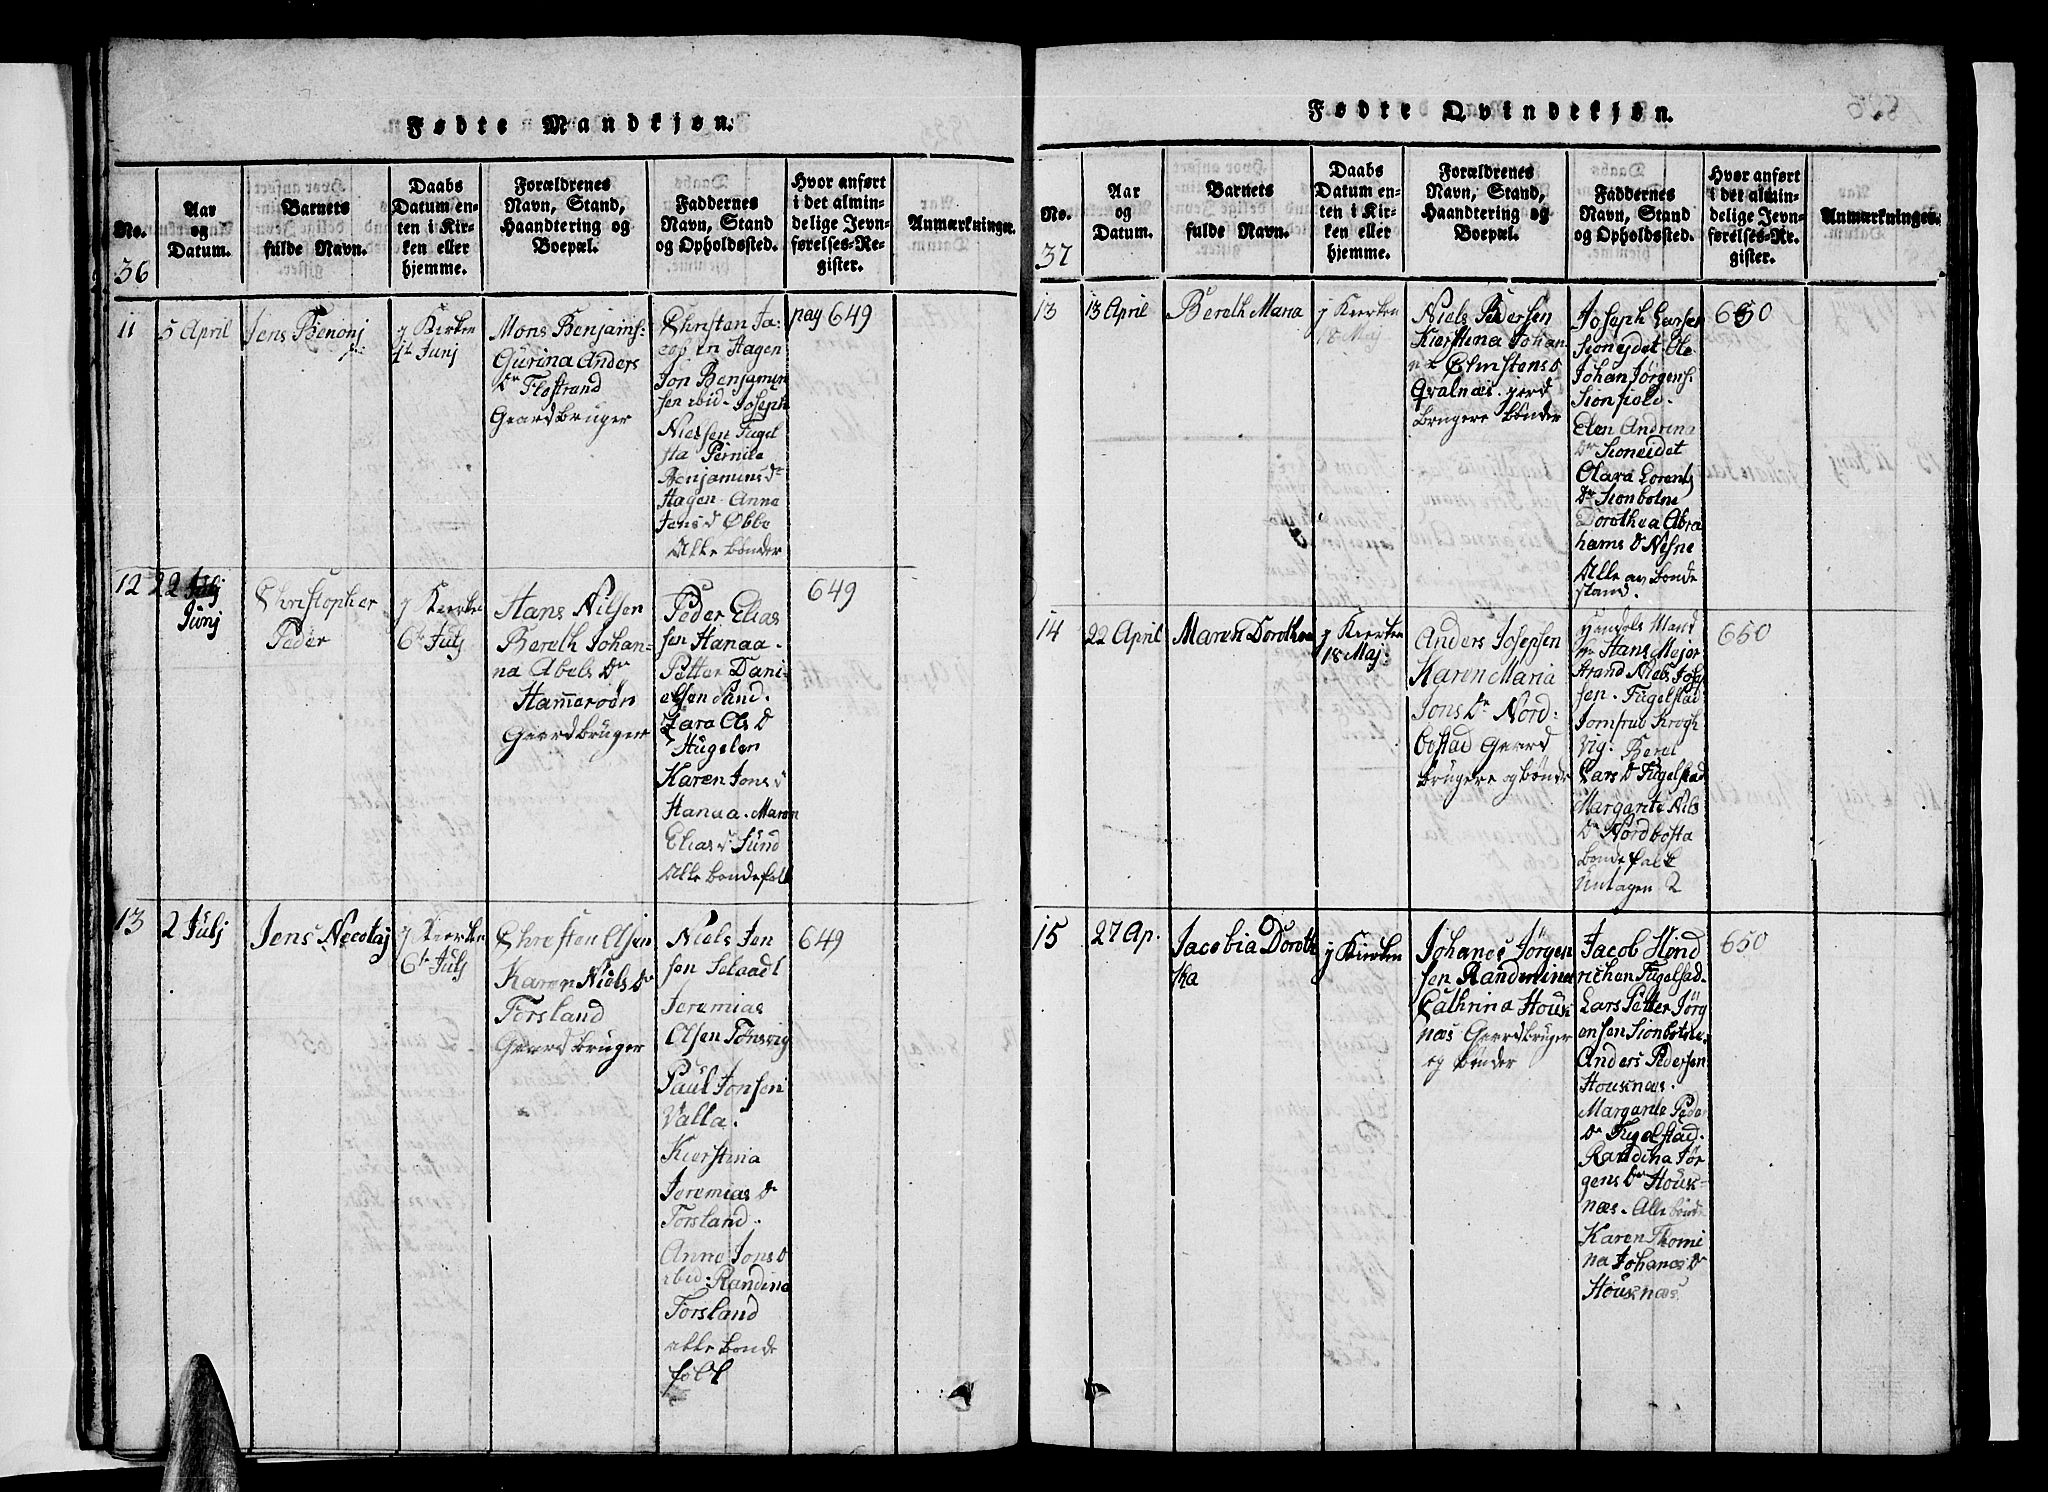 Fødte Mandkjøn.
No.
36
Aar
og
Datum.
Barnets
fulde Navn.
Daabs
Datum en-
ten i Kir-
ken eller
hjemme.
Forældrenes
Navn, Stand,
Haandtering og
Boepæl.
Faddernes
Navn, Stand
og Opholdssted.
Hvor anført
i det almin-
delige Jevn-
førelses-Re-
gister.
Anmærkninger.
11
5 April
Jens Benonj
j Kirken
Junj
Mons Benjams:
Gurina Anders
Dr Flostrand
Geardbruger
Christen Ja-
cobsen Hagen
Jon Benjamin
sen ibid - Joseph
Nielsen Fugel
sta Pernile
Benjamins D
Hagen - Anne
Jens d Øbbe
Alle bønder
pag 649
12
22
Junj
Christopher
Peder
j Kierken
6te Julj
Hans Nilsen
Bereth Johan-
na Abels Dr
Hammerøen
Geardbruger
Peder Elias
sen Hanaa.
Petter Dani-
elsen Sund.
Zara Ols D
Hugelen
Karen Jens d
Hanaa. Maren
Elias d Sund
Alle bondefolk
649
13
2 Julj
Jens Necolaj
j Kierken
6te Julj
Christen Olsen
Karen Niels Dr
Forsland
Geardbruger
Niels Jen
sen Selaadt
Jeremias
Olsen Tønsvig
Paul Jonsen
Valla.
Kierstina
Jeremias Dr
Forsland.
Anne Jons D
ibid: Randina
Forsland
alle bonde
folk
649
Fødte Qvindekjøn.
No.
37
Aar
og
Datum.
Barnets
fulde Navn.
Daabs
Datum en-
ten i Kir-
ken eller
hjemme.
Forældrenes
Navn, Stand,
Haandtering og
Boepæl.
Faddernes
Navn, Stand
og Opholdssted.
Hvor anført
i det almin-
delige Jevn-
førelses-Re-
gister.
Anmærkninger.
13
13 April
Bereth Maria
j Kierken
18 Maj
Niels Pedersen
Kierstina Johan
na Christens D
Qvalnæs. gerd
brugere bønder
Joseph Larsen
Sioneidet Ole
Johan Jørgens.
Sionfold.
Elen Andrina
Dr Sioneidet
Clara Lorents
Dr Sionbotne
Dorothea Abra
hams D Nesne
Alle av bonde
stand.
650
14
22 April
Maren Dorothea
j Kierken
18 Maj
Anders Josephsen
Karen Maria
Jons Dr Nord-
bostad Geard
brugere og bønder
Handels Mand
Hr Hans Mejer
Strand Niels Jose
sen. Fugelstad
Jomfrue Krogh
Vig: Beret
Lars D Fugelstad
Margarite Niels
Dr Nordbosta
bonde folk
Untagen 2
650
15
27 Ap.
Jacobia Doroth
ka
j Kierken
Johanes Jørgen
sen Randemina
Cathrina Hous
næs Geardbruger
og bønder
Jacob Hend
richen Fugelstad.
Lars Petter Jørg
ensen Sionbotne.
Anders Pedersen
Housnæs.
Margarite Peder
Dr Fugelstad.
Randina Jør
gens Dr Hous-
næs. Alle bønde
Karen Thomi
na Johanes Dr
Housnæs
650